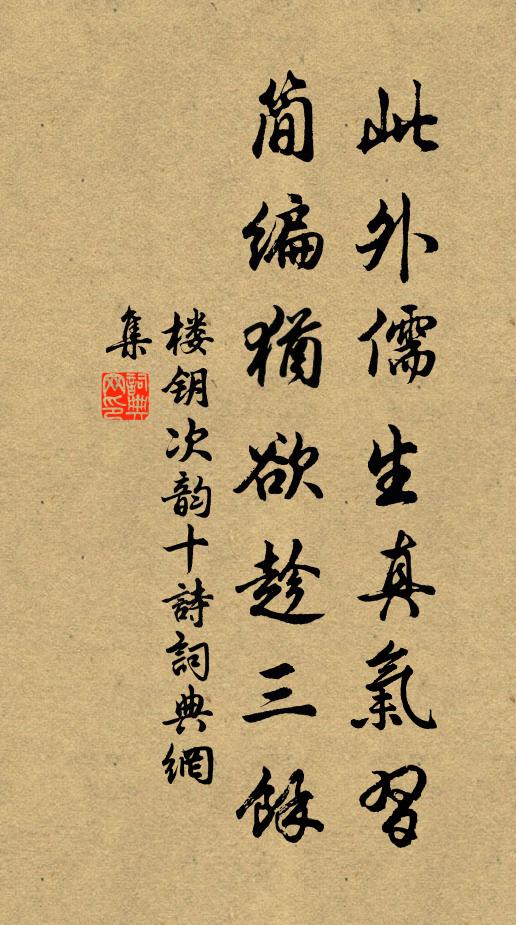 此外儒生真氣習
简編猶欲趁三餘
楼钥次韵十詩詞典網
集
詞典網印